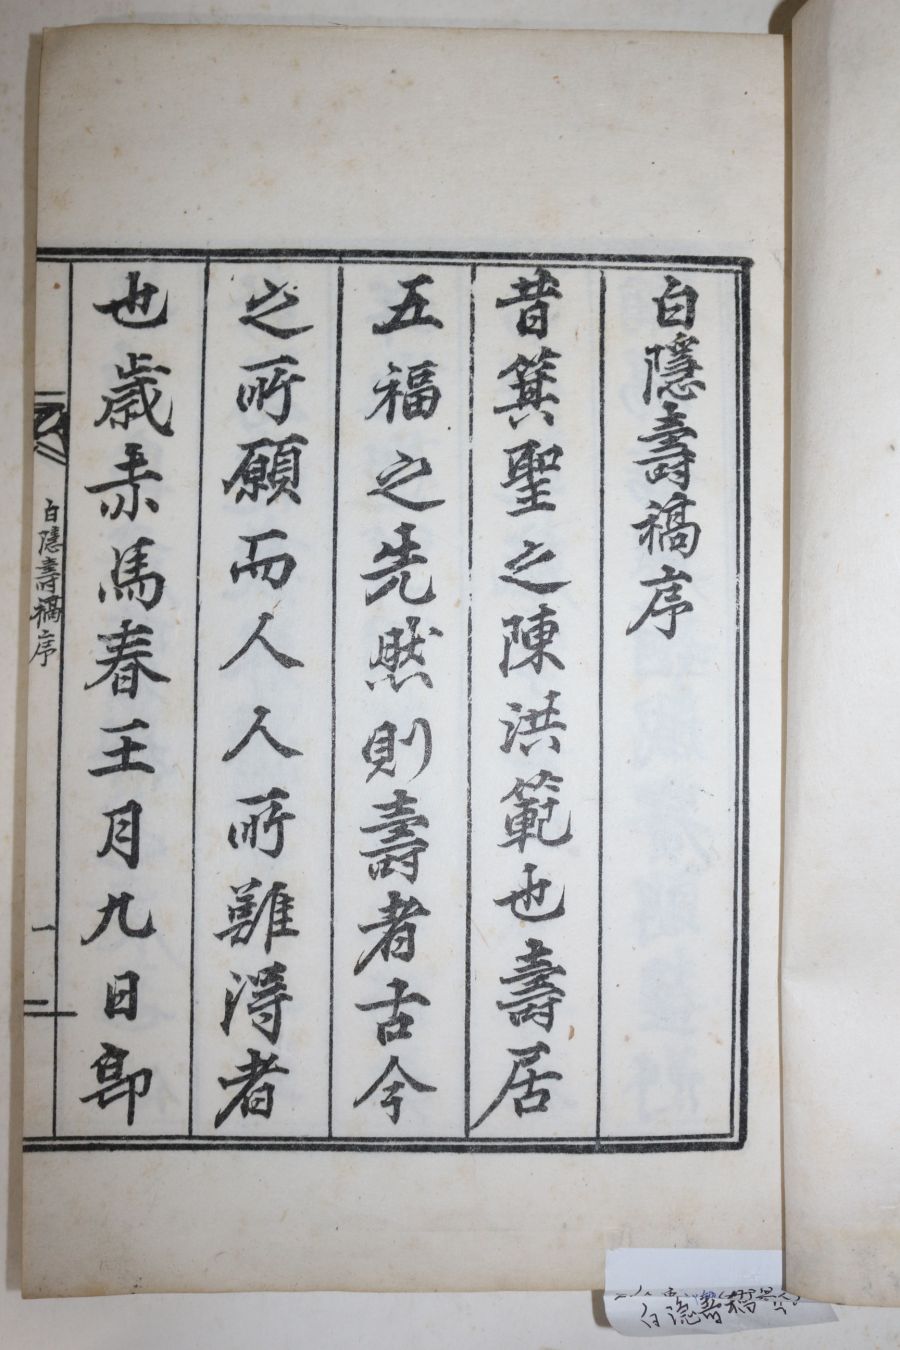 白隱壽稿序
昔箕聖之陳洪範也壽居
五福之先然則壽者古今
之所願而人人所難得者
也歲赤馬春王月九日即
白隱壽稿序
一
白隱壽稿